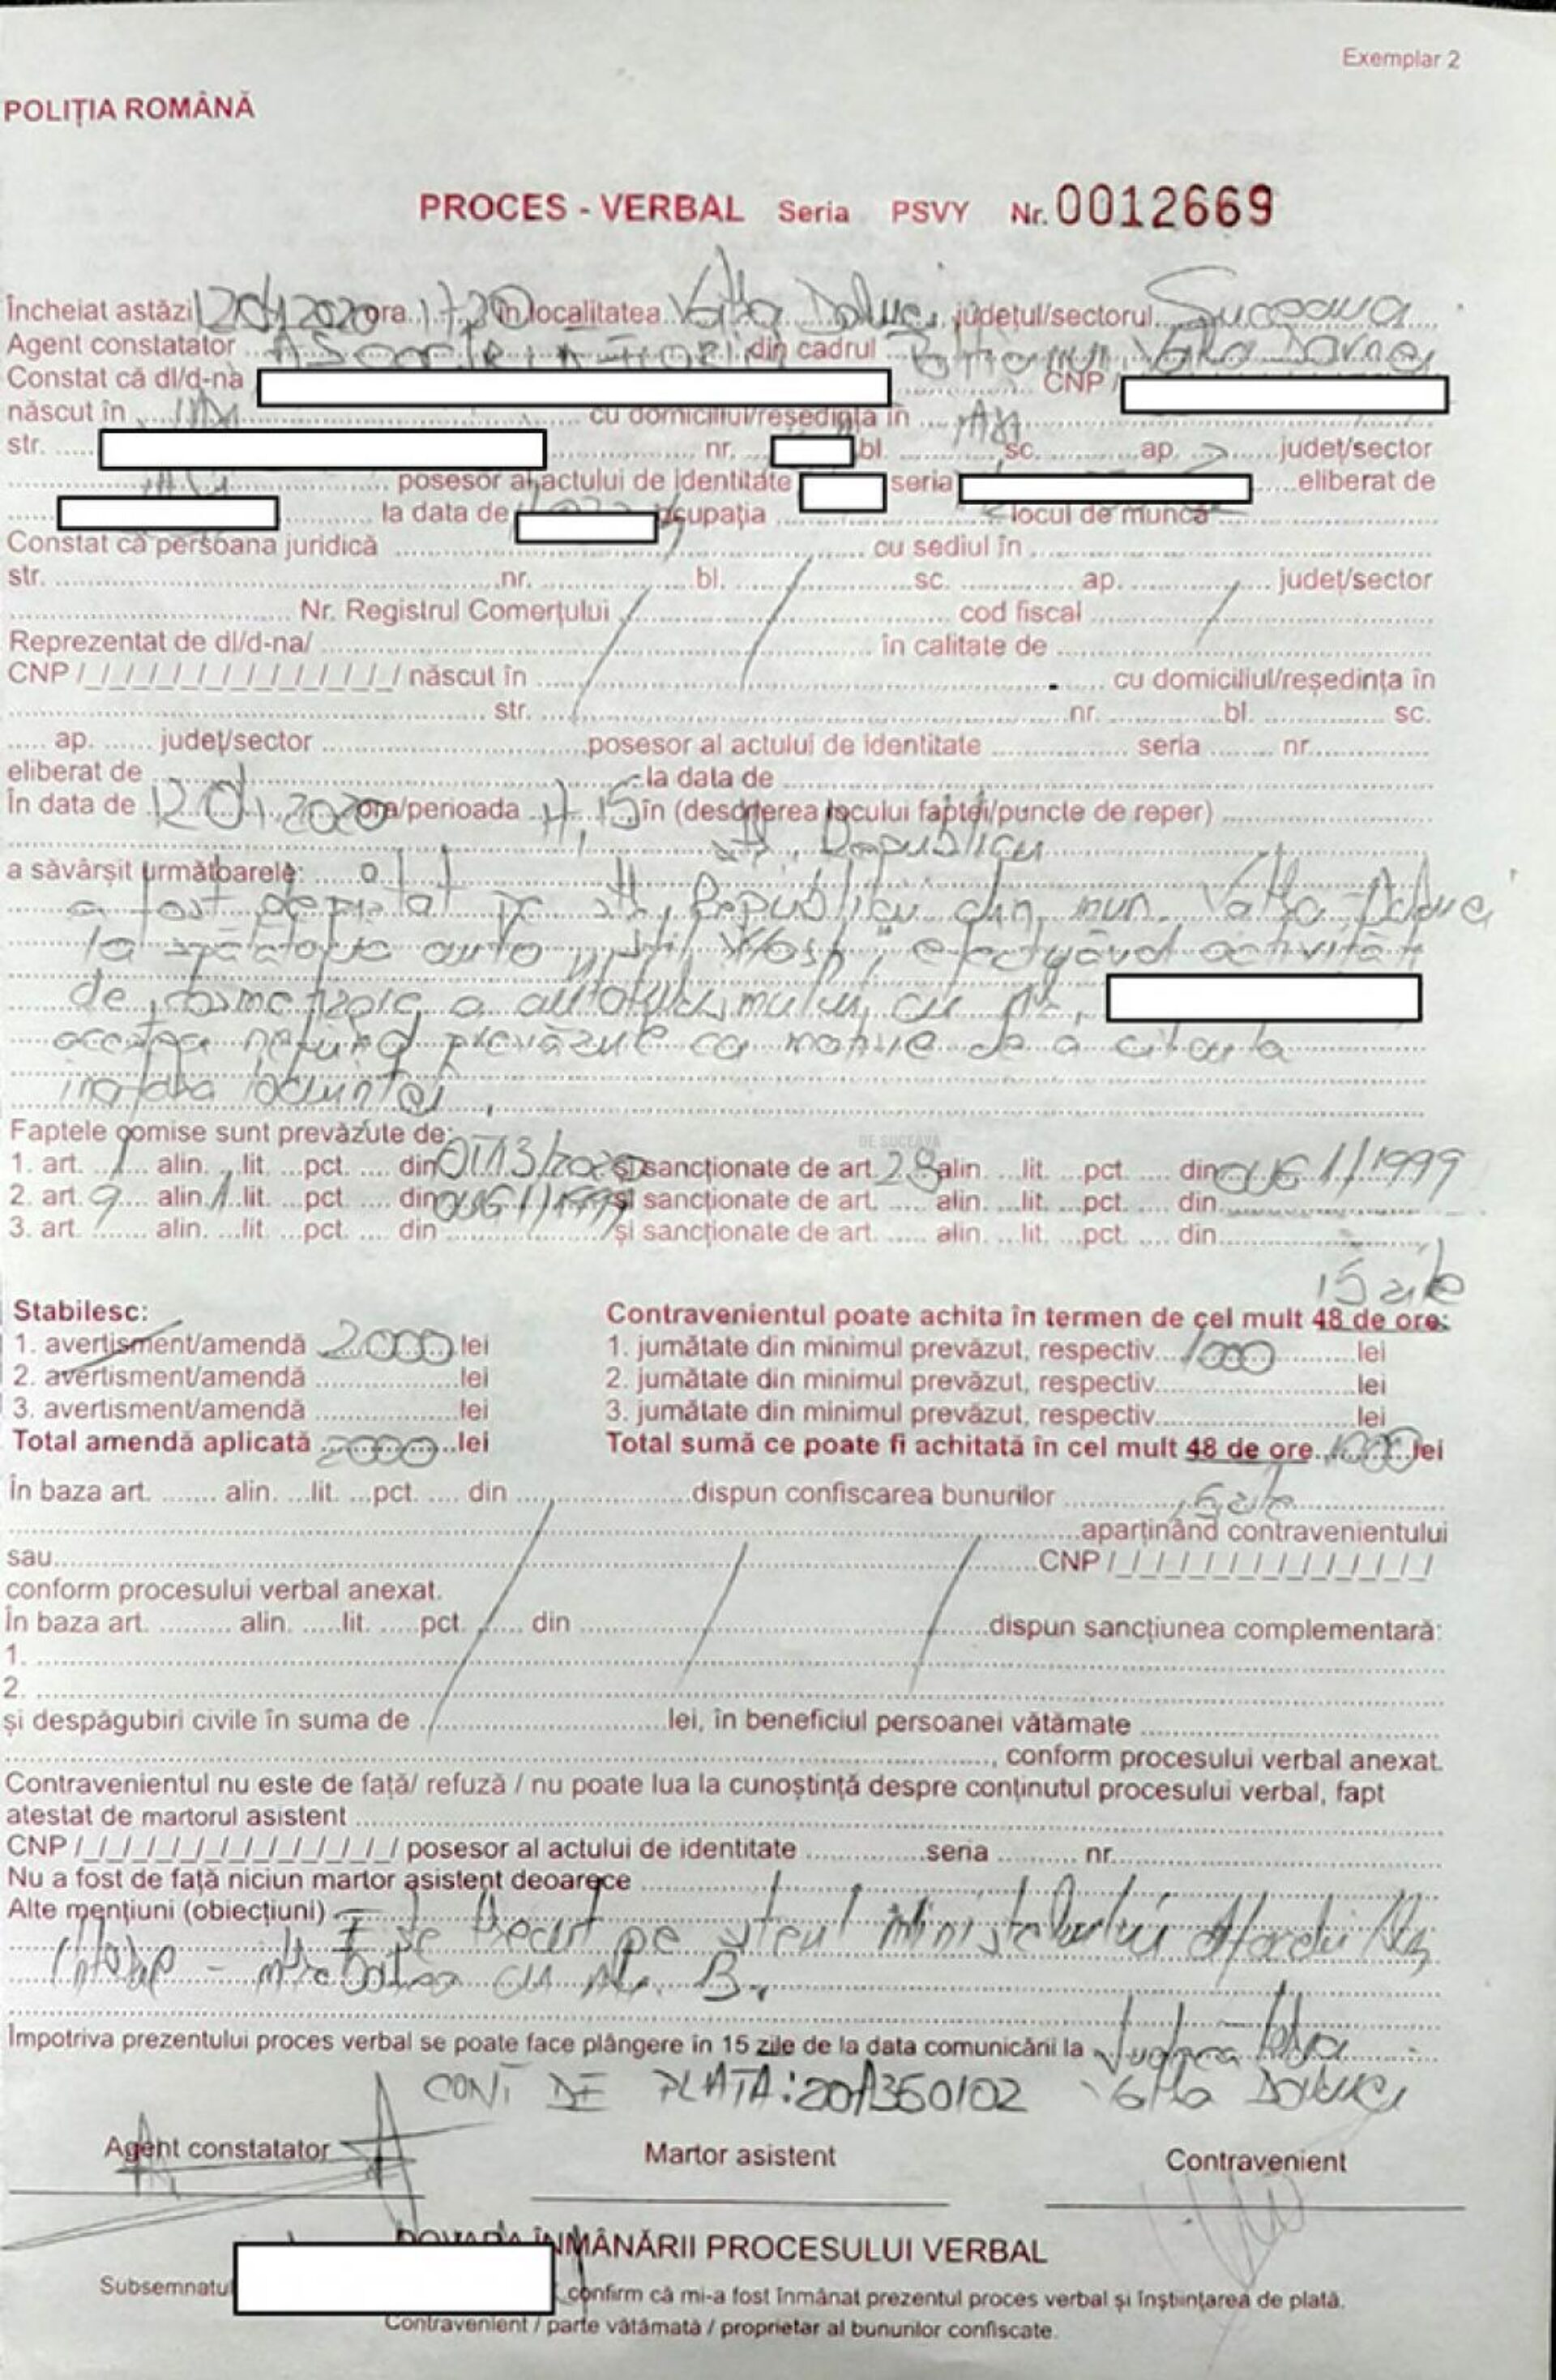 Exemplar 2
POLIȚIA ROMÂNĂ
PROCES - VERBAL Seria PSVY Nr. 0012669
Încheiat astăzi 12.04.2020 ora 17.20 în localitatea Vatra Dornei, județul/sectorul Suceava
Agent constatator ........ din cadrul Poliția mun. Vatra Dornei
Constat că dl/d-na ........ CNP /
născut în ........ cu domiciliul/reședința în ........
str. ........ nr. ........ bl. ........ sc. ........ ap. ........ județ/sector
........ posesor al actului de identitate ........ seria ........ eliberat de
........ la data de ........ ocupația ........ locul de muncă ........
Constat că persoana juridică ........ cu sediul în ........
str. ........ nr. ........ bl. ........ sc. ........ ap. ........ județ/sector
........ Nr. Registrul Comerțului ........ cod fiscal ........
Reprezentat de dl/d-na/ ........ în calitate de ........
CNP /_/_/_/_/_/_/_/_/_/_/_/_/_/ născut în ........ cu domiciliul/reședința în
........ str. ........ nr. ........ bl. ........ sc.
..... ap. ...... județ/sector ........ posesor al actului de identitate ........ seria ........ nr. ........
eliberat de ........ la data de ........
În data de 12.04.2020 ora/perioada 17,15 în (descrierea locului faptei/puncte de reper) ........
str. Republicii
a săvârșit următoarele:
a fost depistat pe str. Republicii din mun. Vatra Dornei
la spălătorie auto Wash, efectuând activități
de cosmetizare a autoturismului cu nr.
acestea nefiind prevăzute ca motive de a
în afara locuinței
Faptele comise sunt prevăzute de:
1. art. 1 alin. ...lit. ...pct. .... din OM 3/2020 și sancționate de art. 28 alin. ...lit. ...pct. .... din OUG 1/1999
2. art. 9 alin. 1 lit. ...pct. .... din OUG 1/1999 și sancționate de art. ..... alin. ...lit. ...pct. .... din ........
3. art. ....... alin. ...lit. ...pct. .... din ........ și sancționate de art. ..... alin. ...lit. ...pct. .... din ........
15 zile
Stabilesc: Contravenientul poate achita în termen de cel mult 48 de ore:
1. avertisment/amendă 2000 lei 1. jumătate din minimul prevăzut, respectiv 1000 lei
2. avertisment/amendă ........ lei 2. jumătate din minimul prevăzut, respectiv ........ lei
3. avertisment/amendă ........ lei 3. jumătate din minimul prevăzut, respectiv ........ lei
Total amendă aplicată 2000 lei Total sumă ce poate fi achitată în cel mult 48 de ore 1000 lei
15 zile
În baza art. ....... alin. ...lit. ...pct. .... din ........ dispun confiscarea bunurilor ........
........ aparținând contravenientului
sau ........ CNP /_/_/_/_/_/_/_/_/_/_/_/_/_/
conform procesului verbal anexat.
În baza art. ......... alin. .....lit. .....pct. ...... din ........ dispun sancțiunea complementară:
1. ........
2. ........
și despăgubiri civile în suma de ........ lei, în beneficiul persoanei vătămate ........
........, conform procesului verbal anexat.
Contravenientul nu este de față/ refuză / nu poate lua la cunoștință despre conținutul procesului verbal, fapt
atestat de martorul asistent ........
CNP /_/_/_/_/_/_/_/_/_/_/_/_/_/ posesor al actului de identitate ........ seria ........ nr. ........
Nu a fost de față niciun martor asistent deoarece ........
Alte mențiuni (obiecțiuni)
pe Ministerului
cu B.
Împotriva prezentului proces verbal se poate face plângere în 15 zile de la data comunicării la Judecătoria
CONT DE PLATA: 20A360102 Vatra Dornei
Agent constatator Martor asistent Contravenient
DOVADA ÎNMÂNĂRII PROCESULUI VERBAL
Subsemnatul ........ confirm că mi-a fost înmânat prezentul proces verbal și înștiințarea de plată.
Contravenient / parte vătămată / proprietar al bunurilor confiscate.